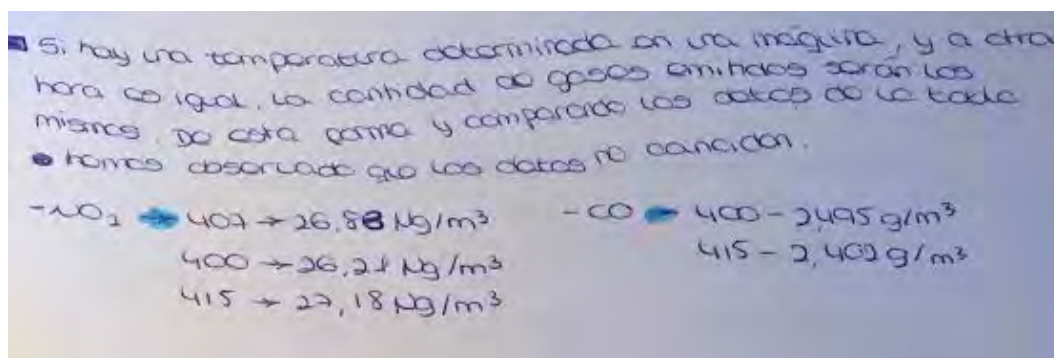 Si hay una temperatura determinada en una máquina, y a otra
hora es igual, la cantidad de gases emitidos serán los
mismos. De esta forma y comparando los datos de la tabla
hemos observado que los datos no coinciden.
-NO₂ → 407 → 26,88 µg/m³ -CO → 400 - 2,495 g/m³
400 → 26,21 µg/m³ 415 - 2,402 g/m³
415 → 27,18 µg/m³